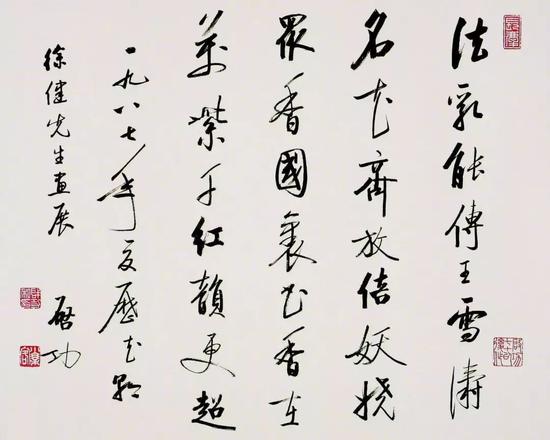 法乳能傳王雪濤
名花齊放倍妖嬈
眾香國裏花香在
萬紫千紅韻更超
一九八七年夏歷花朝
徐健先生畫展
啓功